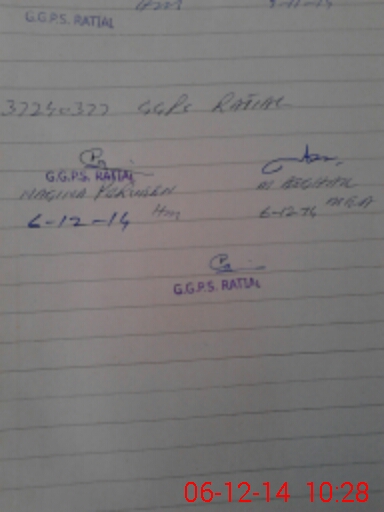 Hm 5-11-14
G.G.P.S. RATIAL
37240377 GGPS RATIAL
G.G.P.S. RATIAL
NAGINA PERVEEN M ASGHAR
Hm MEA
6-12-14 6-12-14
G.G.P.S. RATIAL
06-12-14 10:28